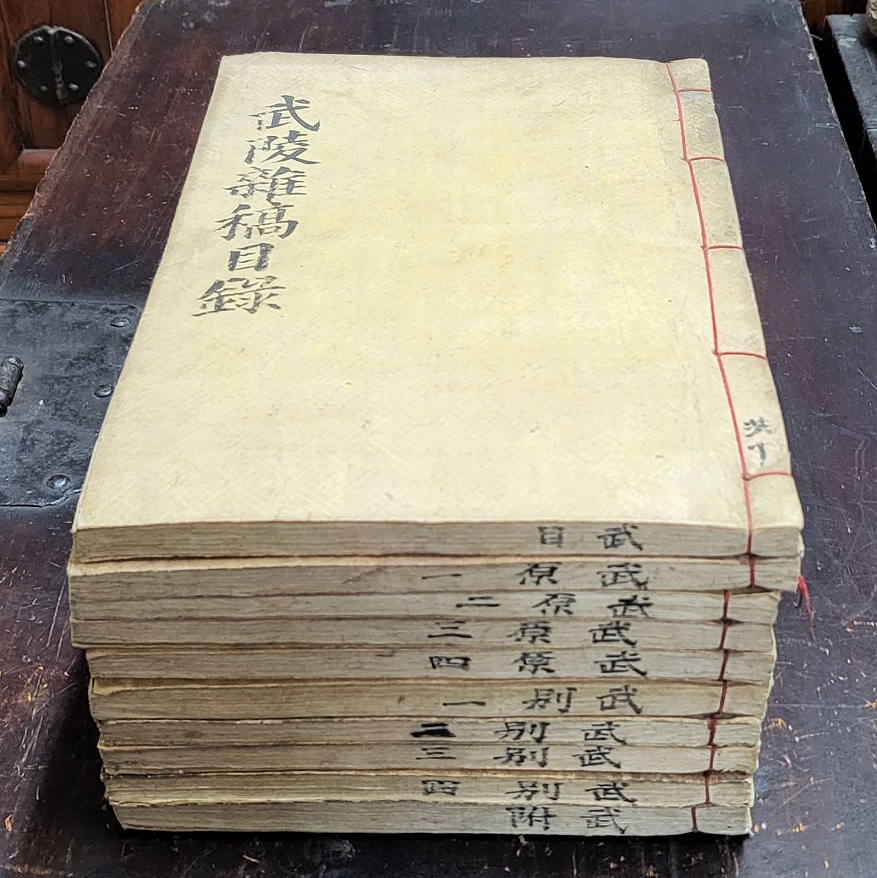 武陵雜稿目錄
共十
武目
武原一
武原二
武原三
武原四
武別一
武別二
武別三
武別四
武附